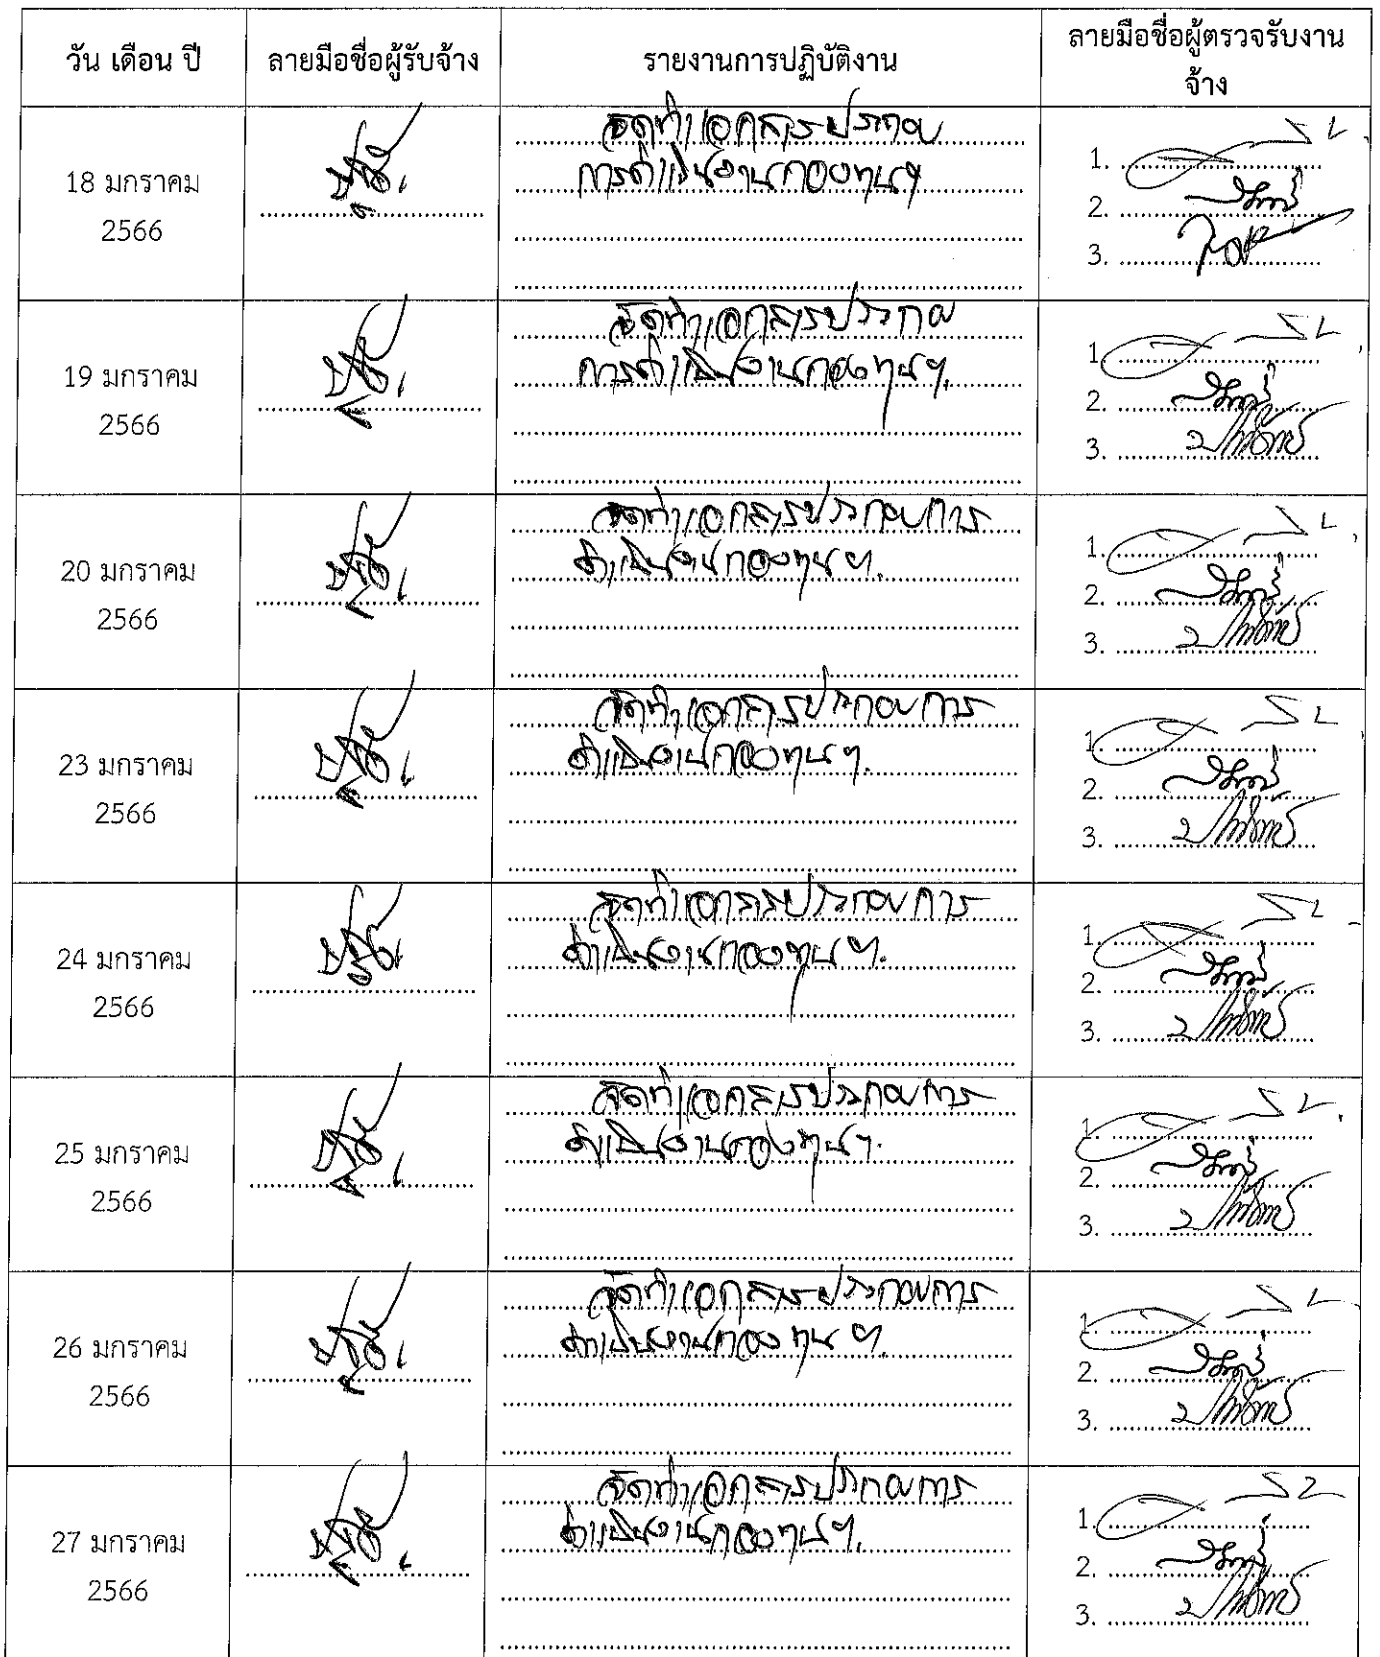 วัน เดือน ปี
ลายมือชื่อผู้รับจ้าง
รายงานการปฏิบัติงาน
ลายมือชื่อผู้ตรวจรับงาน
จ้าง
18 มกราคม
2566
จัดทำเอกสารประกอบ
การดำเนินงานกองทุนฯ
1.
2.
3.
19 มกราคม
2566
จัดทำเอกสารประกอบ
การดำเนินงานกองทุนฯ.
1.
2.
3.
20 มกราคม
2566
จัดทำเอกสารประกอบการ
ดำเนินงานกองทุนฯ.
1.
2.
3.
23 มกราคม
2566
จัดทำเอกสารประกอบการ
ดำเนินงานกองทุนฯ.
1.
2.
3.
24 มกราคม
2566
จัดทำเอกสารประกอบการ
ดำเนินงานกองทุนฯ.
1.
2.
3.
25 มกราคม
2566
จัดทำเอกสารประกอบการ
ดำเนินงานกองทุนฯ.
1.
2.
3.
26 มกราคม
2566
จัดทำเอกสารประกอบการ
ดำเนินงานกองทุนฯ.
1.
2.
3.
27 มกราคม
2566
จัดทำเอกสารประกอบการ
ดำเนินงานกองทุนฯ.
1.
2.
3.